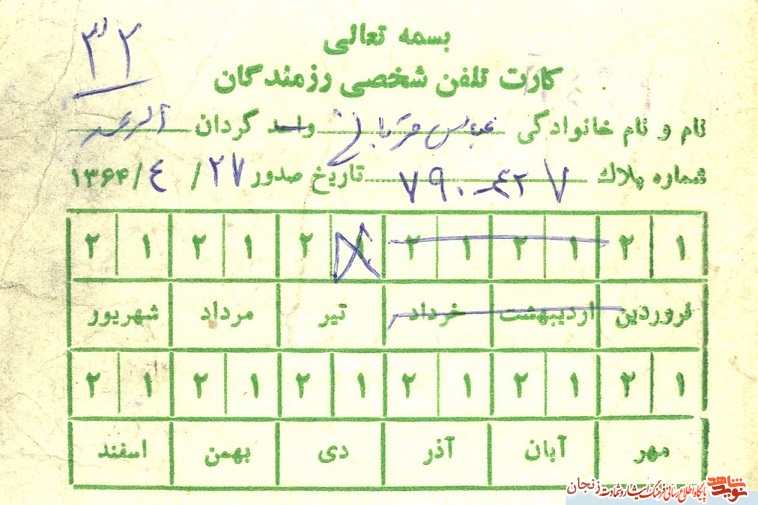 ۳۲
بسمه تعالی
کارت تلفن شخصی رزمندگان
نام و نام خانوادگی عباس واحد گردان
شماره پلاک ۷۹۰-۴۲۷ تاریخ صدور ۲۷ / ٤ /۱۳۶۴
۱ ۲ ۱ ۲ ۱ ۲ ۱ ۲ ۱ ۲ ۱ ۲
فروردین اردیبهشت خرداد تیر مرداد شهریور
۱ ۲ ۱ ۲ ۱ ۲ ۱ ۲ ۱ ۲ ۱ ۲
مهر آبان آذر دی بهمن اسفند
نوید شاهد پایگاه اطلاع رسانی فرهنگ ایثار و شهادت زنجان